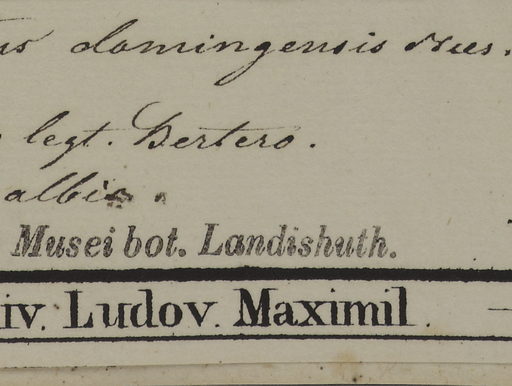 us domingensis Nees.
legt. Bertero.
albis.
Musei bot. Landishuth.
iv. Ludov. Maximil.